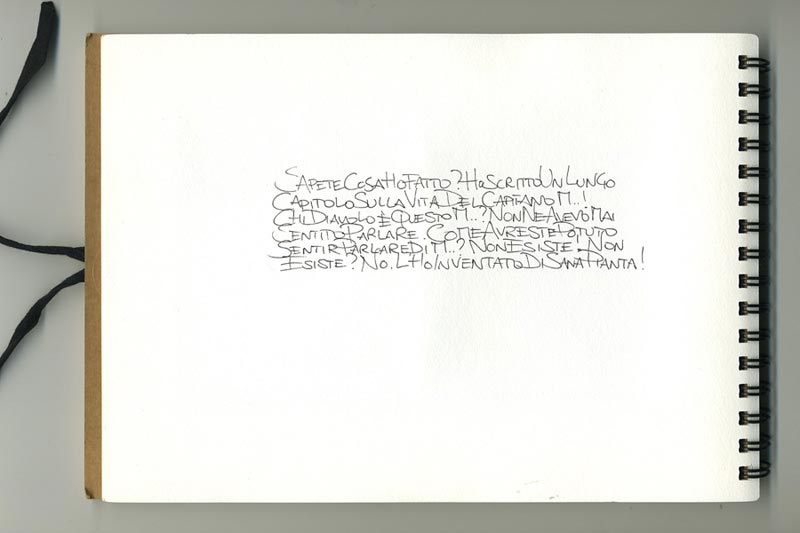 SAPETE COSA HO FATTO? HO SCRITTO UN LUNGO
CAPITOLO SULLA VITA DEL CAPITANO M..!
CHI DIAVOLO È QUESTO M..? NON NE AVEVO MAI
SENTITO PARLARE. COME AVRESTE POTUTO
SENTIR PARLARE DI M..? NON ESISTE. NON
ESISTE? NO. L'HO INVENTATO DI SANA PIANTA!